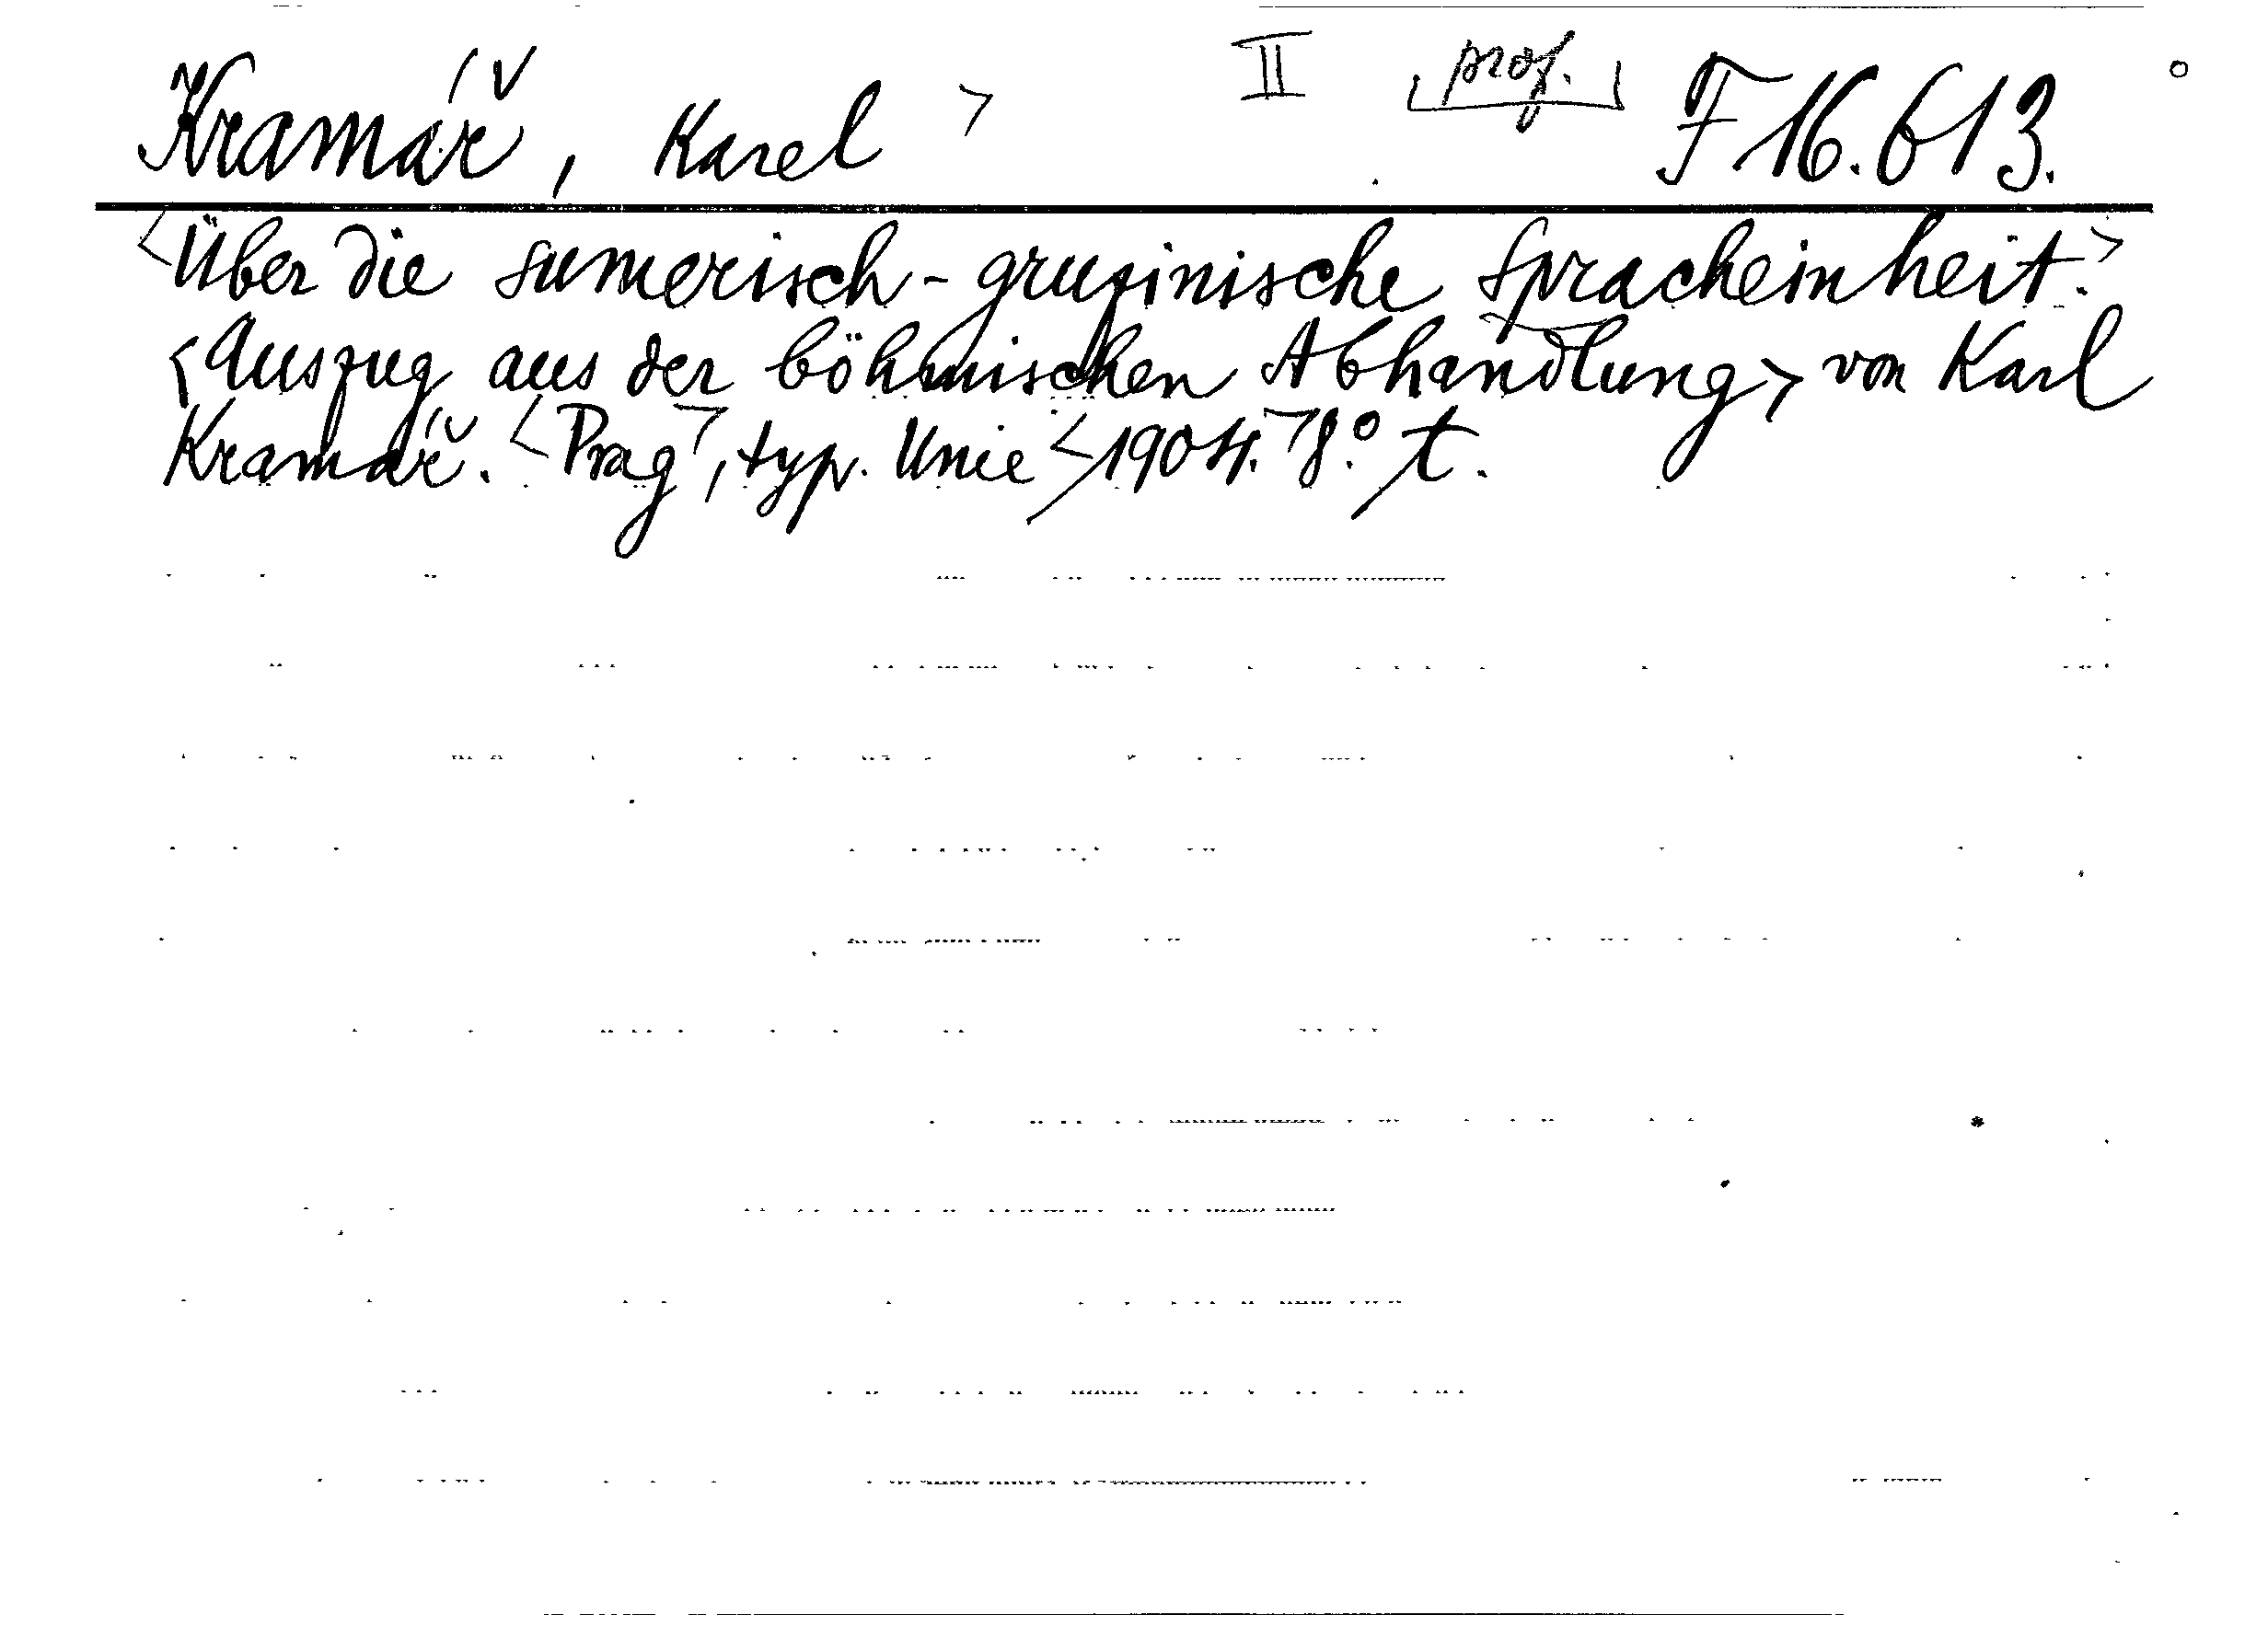 Kramář, Karel > II prof. F 16.613.
<Über die sumerisch-grusinische Spracheinheit.>
<Auszug aus der böhmischen Abhandlung> von Karl
Kramář. <Prag>, typ. Unie <1904.> 8° t.